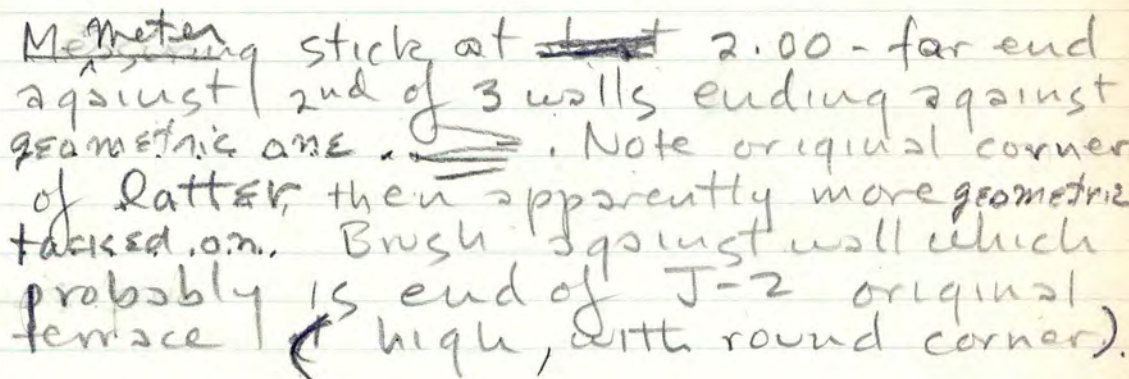 Meter stick at 2.00 - far end
against 2nd of 3 walls ending against
geometric one. Note original corner
of latter, then apparently more geometric
tacked on. Brush against wall which
probably is end of J-2 original
terrace ( high, with round corner).